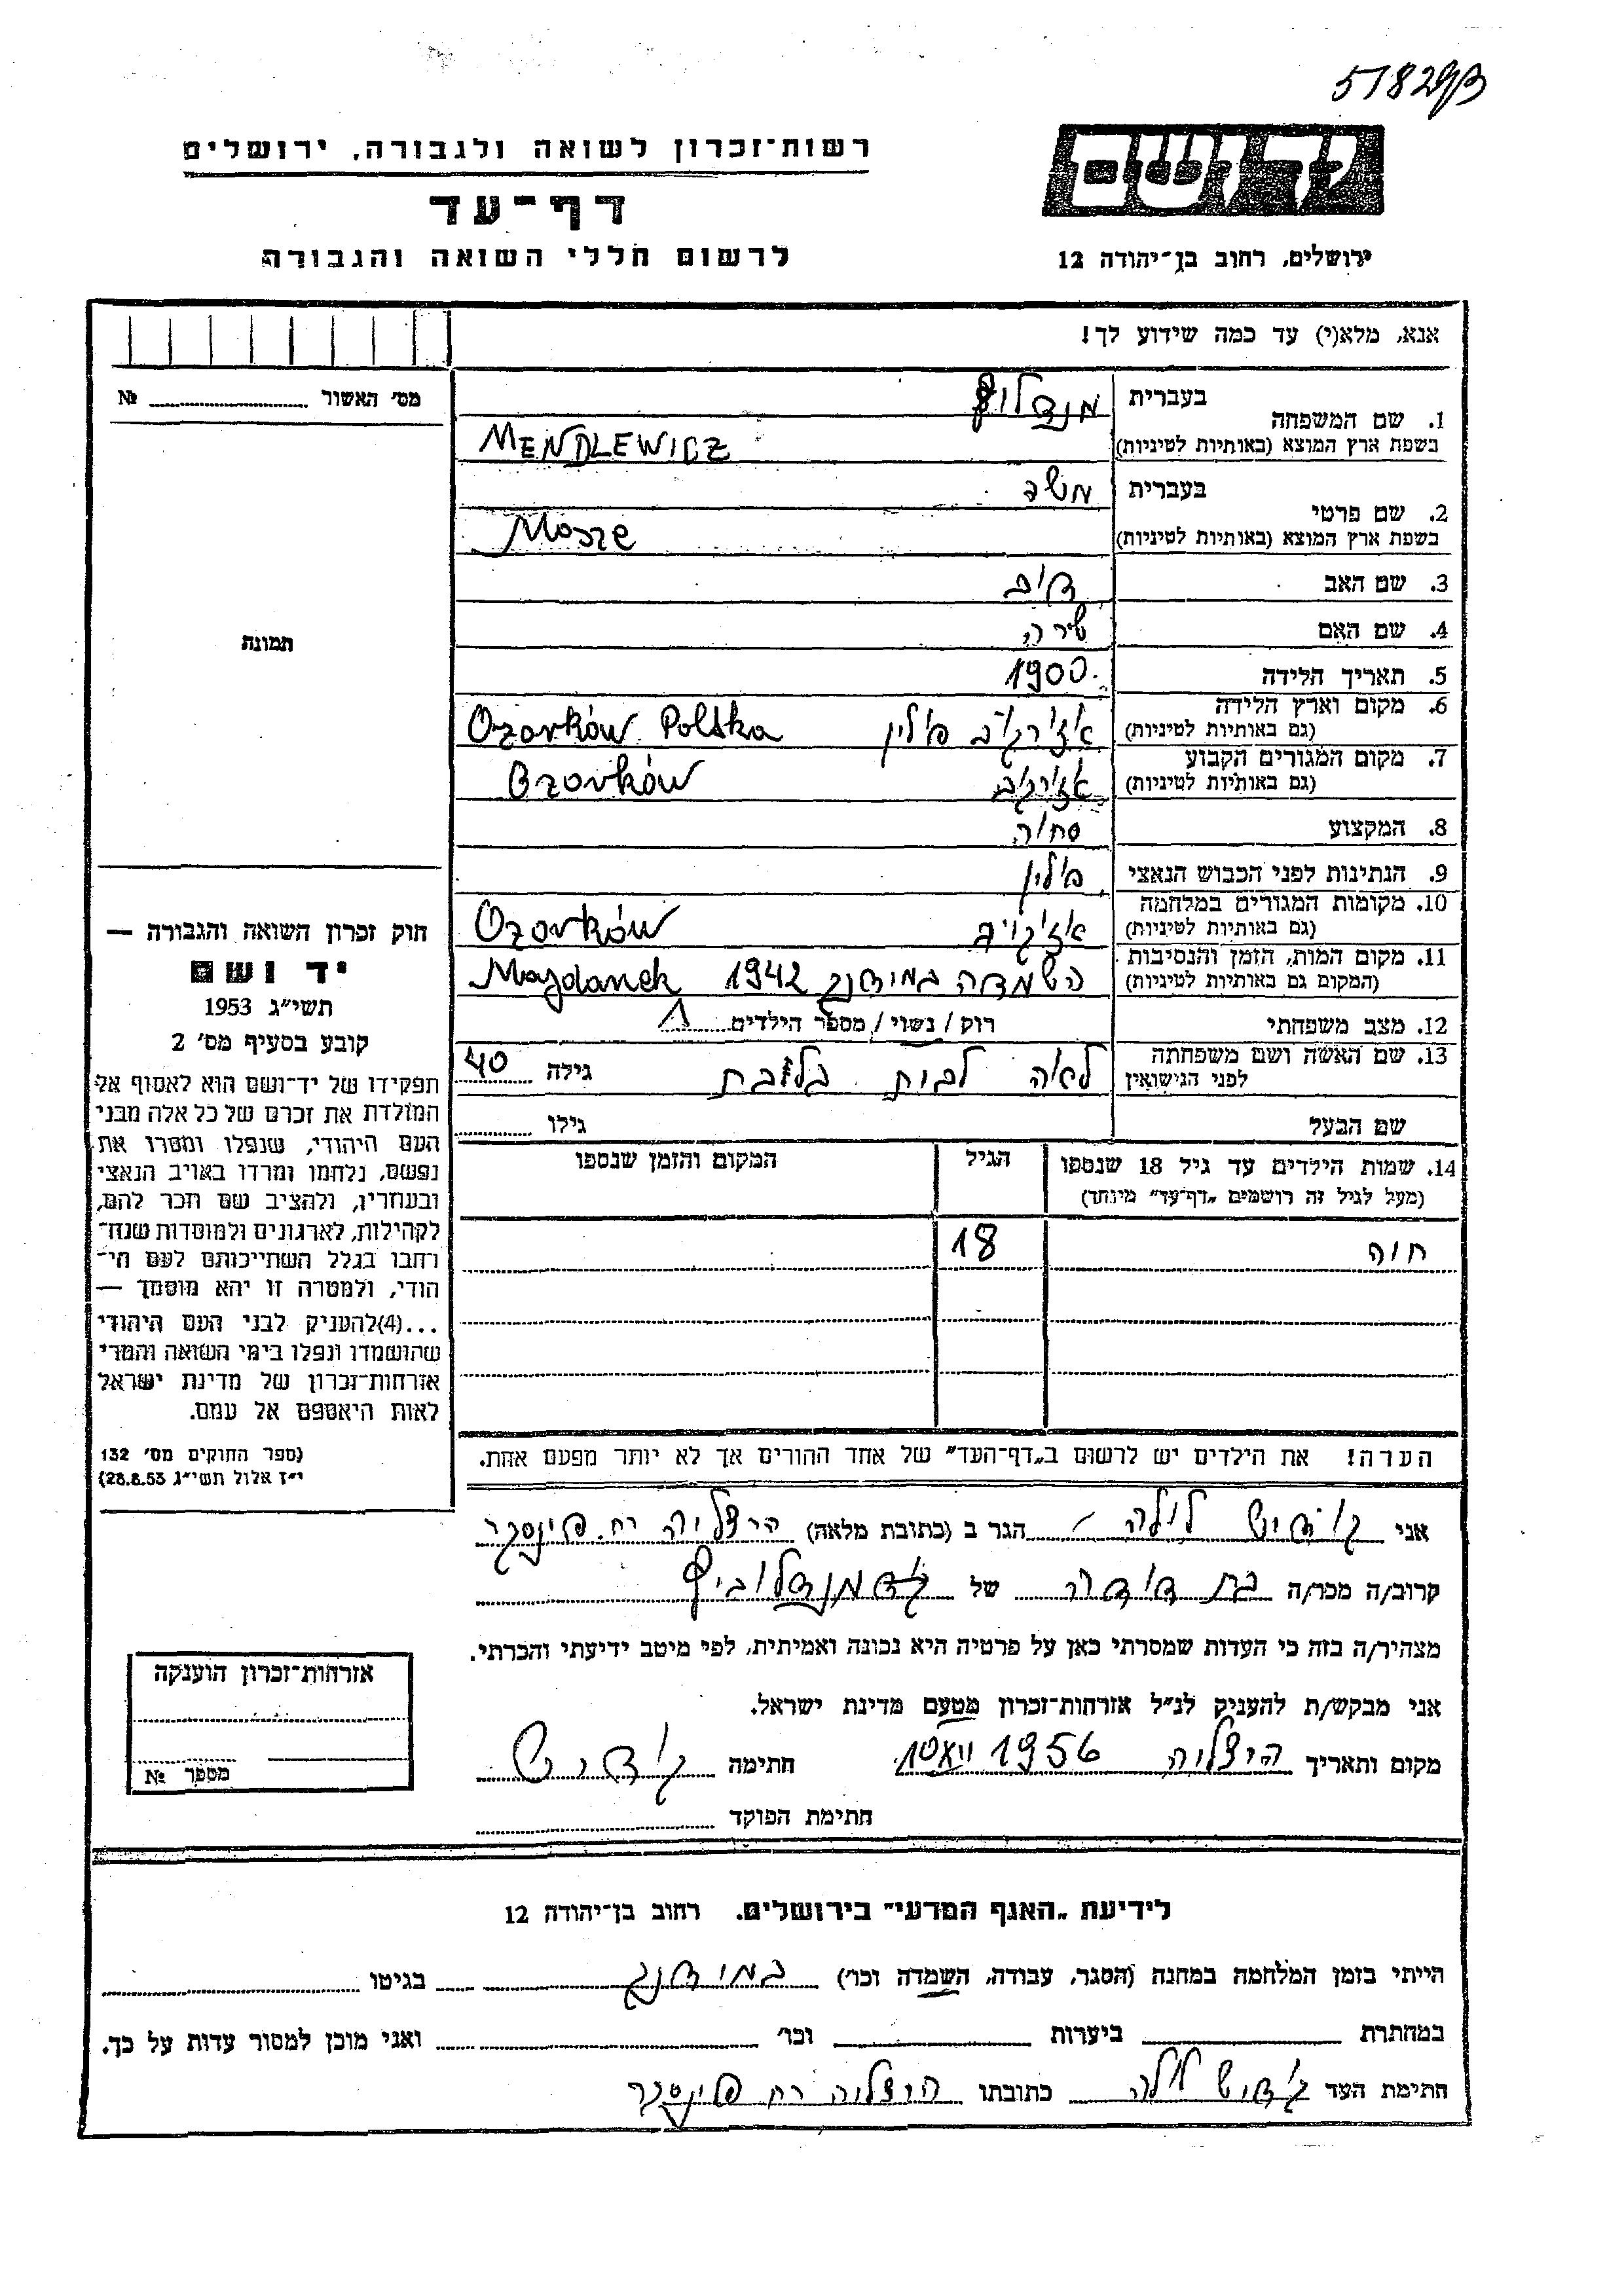 518293
רשות־זכרון לשואה ולגבורה, ירושלים
דף־עד
לרשום חללי השואה והגבורה
ידושם
ירושלים, רחוב בן־יהודה 12
אנא, מלא(י) עד כמה שידוע לך!
מס' האשור № 
1. שם המשפחה בעברית
בשפת ארץ המוצא (באותיות לטיניות) MENDLEWICZ
2. שם פרטי בעברית משה
בשפת ארץ המוצא (באותיות לטיניות) Mosze
3. שם האב דוב
4. שם האם שירה
5. תאריך הלידה 1900
6. מקום וארץ הלידה (גם באותיות לטיניות) פולין Ozorków Polska
7. מקום המגורים הקבוע (גם באותיות לטיניות) Ozorków
8. המקצוע סחור
9. הנתינות לפני הכבוש הנאצי פולין
10. מקומות המגורים במלחמה (גם באותיות לטיניות) Ozorków
11. מקום המות, הזמן והנסיבות (המקום גם באותיות לטיניות) השמדה במידנק 1942 Majdanek
12. מצב משפחתי רוק / נשוי / מספר הילדים 1
13. שם האשה ושם משפחתה לפני הנישואין לאה לבית גילה 40
שם הבעל גילו
14. שמות הילדים עד גיל 18 שנספו הגיל המקום והזמן שנספו
(מעל לגיל זה רושמים „דף־עד" מיוחד)
חוה 18
הערה! את הילדים יש לרשום ב„דף־העד" של אחד ההורים אך לא יותר מפעם אחת.
תמונה
חוק זכרון השואה והגבורה —
יד ושם
תשי"ג 1953
קובע בסעיף מס' 2
תפקידו של יד־ושם הוא לאסוף אל
המולדת את זכרם של כל אלה מבני
העם היהודי, שנפלו ומסרו את
נפשם, נלחמו ומרדו באויב הנאצי
ובעוזריו, ולהציב שם וזכר להם,
לקהילות, לארגונים ולמוסדות שנח־
רחבו בגלל השתייכותם לעם הי־
הודי, ולמטרה זו יהא מוסמך —
...(4)להעניק לבני העם היהודי
שהושמדו ונפלו בימי השואה והמרי
אזרחות־זכרון של מדינת ישראל
לאות היאספם אל עמם.
(ספר החוקים מס' 132
י"ז אלול תשי"ג 28.8.53)
אני לולה הגר ב (כתובת מלאה) הרצליה רח. פינסקר
קרוב/ה מכר/ה בת דודה של
מצהיר/ה בזה כי העדות שמסרתי כאן על פרטיה היא נכונה ואמיתית, לפי מיטב ידיעתי והכרתי.
אני מבקש/ת להעניק לנ"ל אזרחות־זכרון מטעם מדינת ישראל.
מקום ותאריך הרצליה 1956 חתימה
חתימת הפוקד
אזרחות־זכרון הוענקה
מספר №
לידיעת „האגף המדעי" בירושלים. רחוב בן־יהודה 12
הייתי בזמן המלחמה במחנה (הסגר, עבודה, השמדה וכו') במידנק בגיטו
במחתרת ביערות וכו' ואני מוכן למסור עדות על כך.
חתימת העד לולה כתובתו הרצליה רח פינסקר